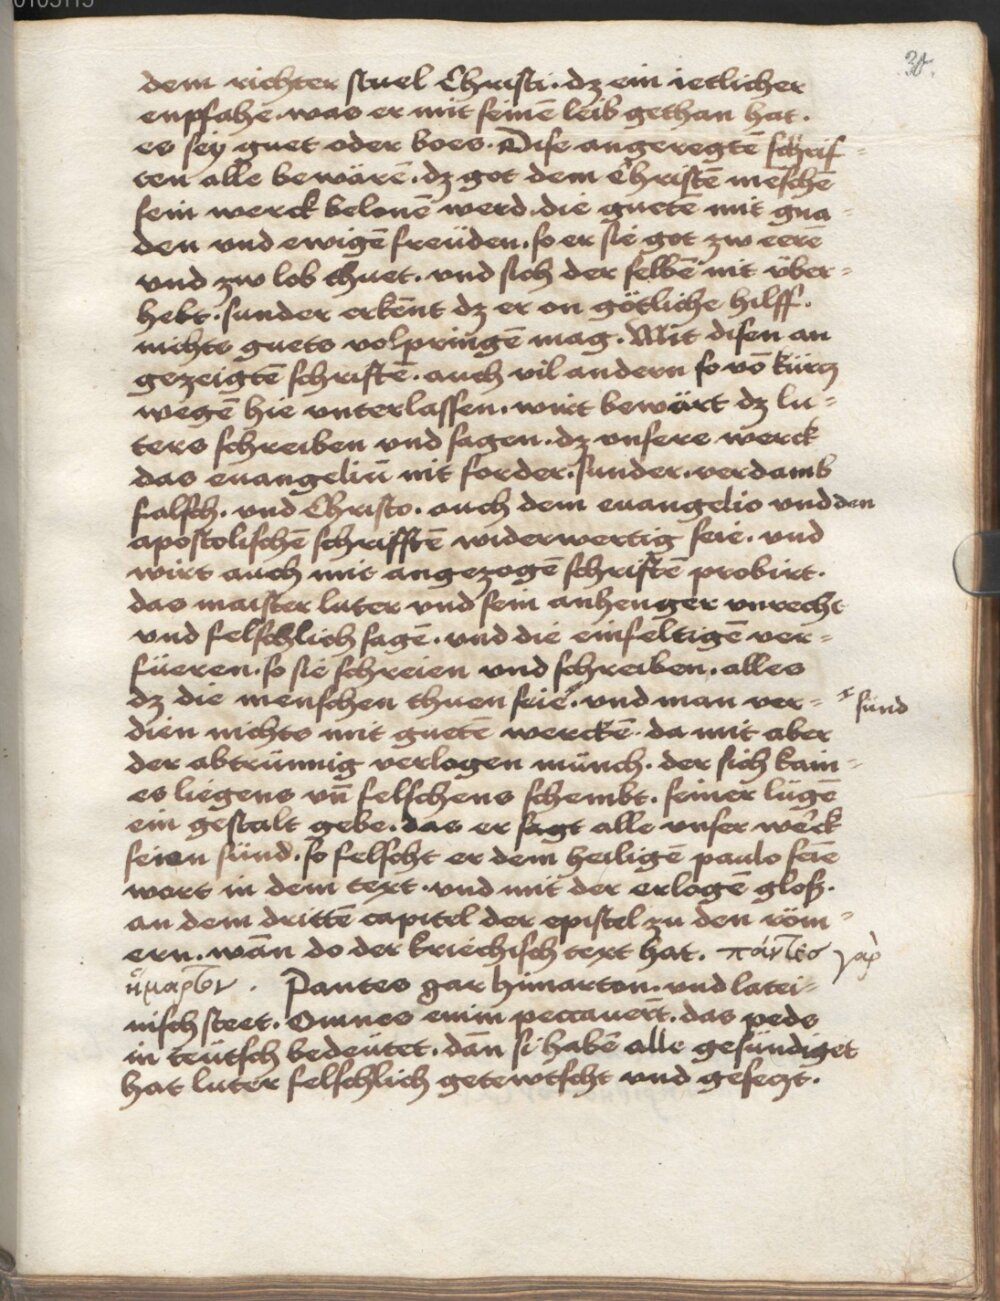 30.
dem richter stuel Christi. dz ein ietlicher
enpfahe. was er mit seinē leib gethan hat.
es sey guet oder boes. Dise angeregtē schrif-
ten alle bewärē. dz got dem Christē meschē
sein werck belonē werd. die guetē mit gna-
den vnd ewigē freüden. so er sie got zw eerē
vnd zw lob thuet. vnd sich der selbē nit über-
hebt. sunder erkēnt dz er on götliche hilff.
nichts guets volpringē mag. Mit disen an
gezeigtē schriftē. auch vil andern so vō kürtz
wegē hie vnterlassen. wirt bewärt dz lu-
ters schreiben vnd sagen. dz vnsere werck
das euangeliū nit forder. sunder. verdamb
falsch. vnd Christo. auch dem euangelio vnd den
apostolischē schrifftē widerwertig seie. vnd
wirt auch mit angezogē schriftē probirt.
das maister luter vnd sein anhenger vnrecht
vnd felschlich sagē. vnd die einfeltigē ver-
füeren. so sie schreien vnd schreiben. alles
dz die menschen thuen seie. vnd man ver-
sünd
dien nichts mit guetē werckē. da mit aber
der abtrünnig verlogen münch. der sich kain-
es liegens vñ felschens schembt. seiner lügē
ein gestalt gebe. das er sagt alle vnser werck
seien sünd. so felscht er dem heiligē paulo seīe
wort in dem text. vnd mit der erlogē gloß.
an dem drittē capitel der epistel zu den röm-
ern. wan do der kriechisch text hat. πάντες γαρ̀
ἥμαρτον. Pantes gar himarton. vnd latei-
nisch steet. Omnes enim peccauerūt. das yeds
in teütsch bedeütet. dān si habē alle gesündiget
hat luter felschlich getewtscht vnd gesetzt.